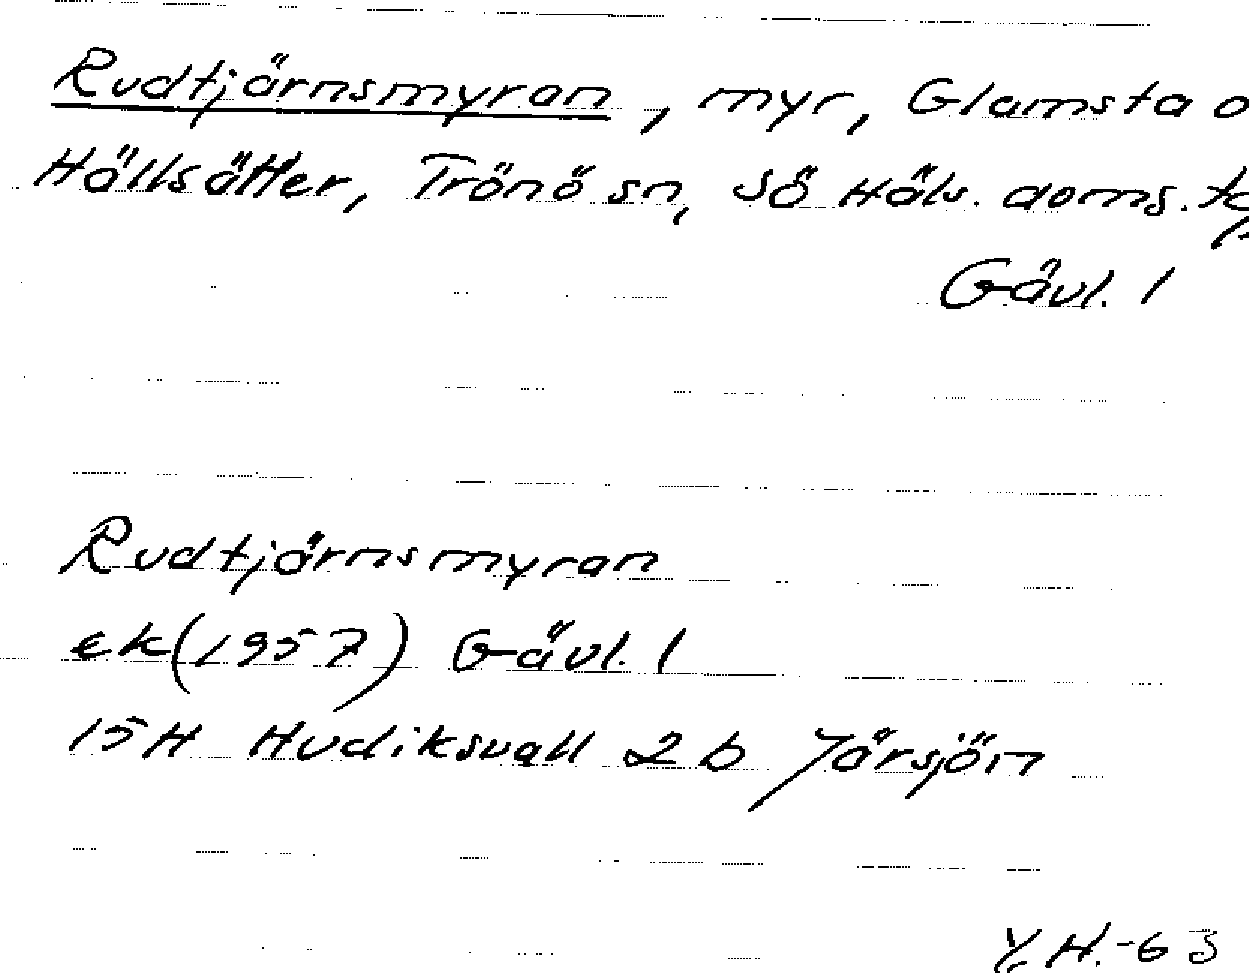 Rudtjärnsmyran, myr, Glamsta o
Hällsätter, Trönö sn, Sö Häls. doms.
Gävl. l
Rudtjärnsmyran
ek (1957) Gävl. l
15H Hudiksvall 2 b Yårsjön
Y.H.-63